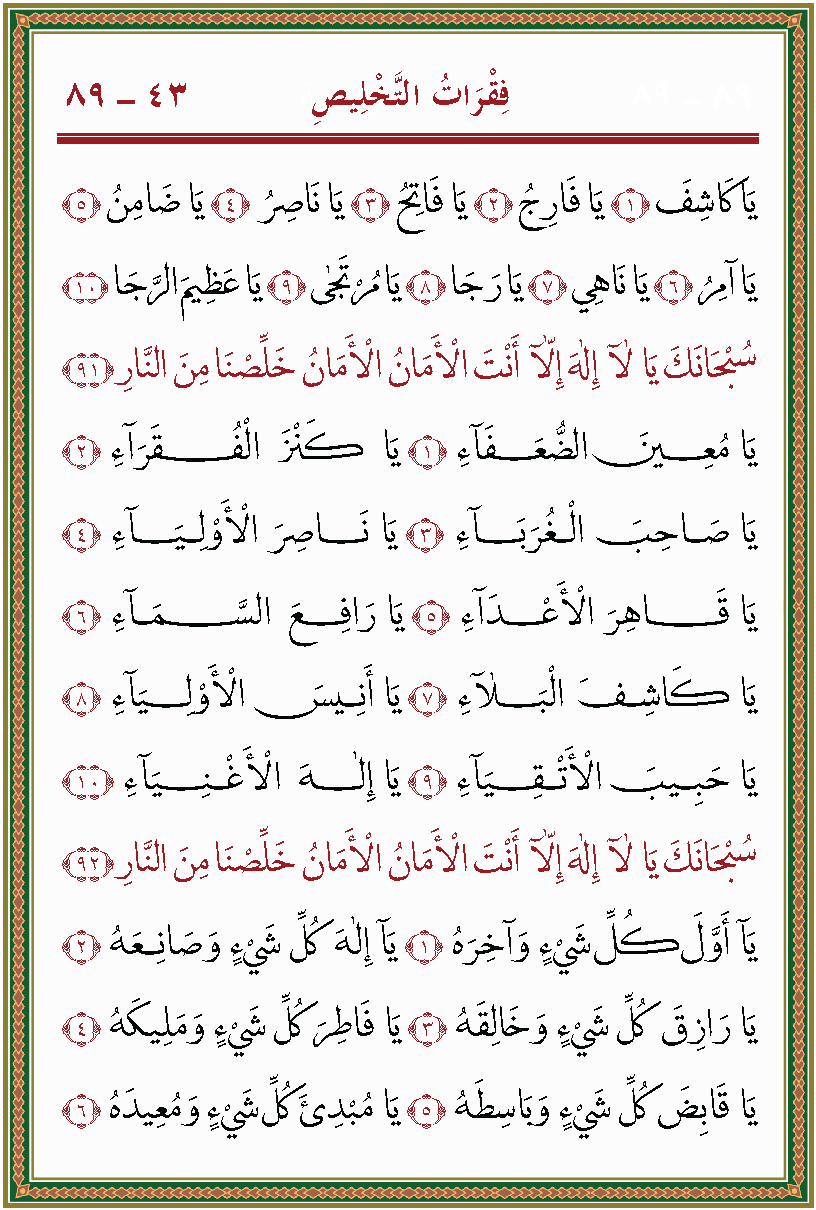 فِقْرَاتُ التَّخْلِيصِ ٤٣ ـ ٨٩
يَا كَاشِفَ ﴿١﴾ يَا فَارِجُ ﴿٢﴾ يَا فَاتِحُ ﴿٣﴾ يَا نَاصِرُ ﴿٤﴾ يَا ضَامِنُ ﴿٥﴾
يَا آمِرُ ﴿٦﴾ يَا نَاهِي ﴿٧﴾ يَا رَجَا ﴿٨﴾ يَا مُرْتَجٰى ﴿٩﴾ يَا عَظِيمَ الرَّجَا ﴿١٠﴾
سُبْحَانَكَ يَا لٰٓا إِلٰهَ إِلَّآ أَنْتَ الْأَمَانُ الْأَمَانُ خَلِّصْنَا مِنَ النَّارِ ﴿٩١﴾
يَا مُعِينَ الضُّعَفَآءِ ﴿١﴾ يَا كَنْزَ الْفُقَرَآءِ ﴿٢﴾
يَا صَاحِبَ الْغُرَبَآءِ ﴿٣﴾ يَا نَاصِرَ الْأَوْلِيَآءِ ﴿٤﴾
يَا قَاهِرَ الْأَعْدَآءِ ﴿٥﴾ يَا رَافِعَ السَّمَآءِ ﴿٦﴾
يَا كَاشِفَ الْبَلَآءِ ﴿٧﴾ يَا أَنِيسَ الْأَوْلِيَآءِ ﴿٨﴾
يَا حَبِيبَ الْأَتْقِيَآءِ ﴿٩﴾ يَا إِلٰهَ الْأَغْنِيَآءِ ﴿١٠﴾
سُبْحَانَكَ يَا لٰٓا إِلٰهَ إِلَّآ أَنْتَ الْأَمَانُ الْأَمَانُ خَلِّصْنَا مِنَ النَّارِ ﴿٩٢﴾
يَآ أَوَّلَ كُلِّ شَيْءٍ وَآخِرَهُ ﴿١﴾ يَآ إِلٰهَ كُلِّ شَيْءٍ وَصَانِعَهُ ﴿٢﴾
يَا رَازِقَ كُلِّ شَيْءٍ وَخَالِقَهُ ﴿٣﴾ يَا فَاطِرَ كُلِّ شَيْءٍ وَمَلِيكَهُ ﴿٤﴾
يَا قَابِضَ كُلِّ شَيْءٍ وَبَاسِطَهُ ﴿٥﴾ يَا مُبْدِئَ كُلِّ شَيْءٍ وَمُعِيدَهُ ﴿٦﴾